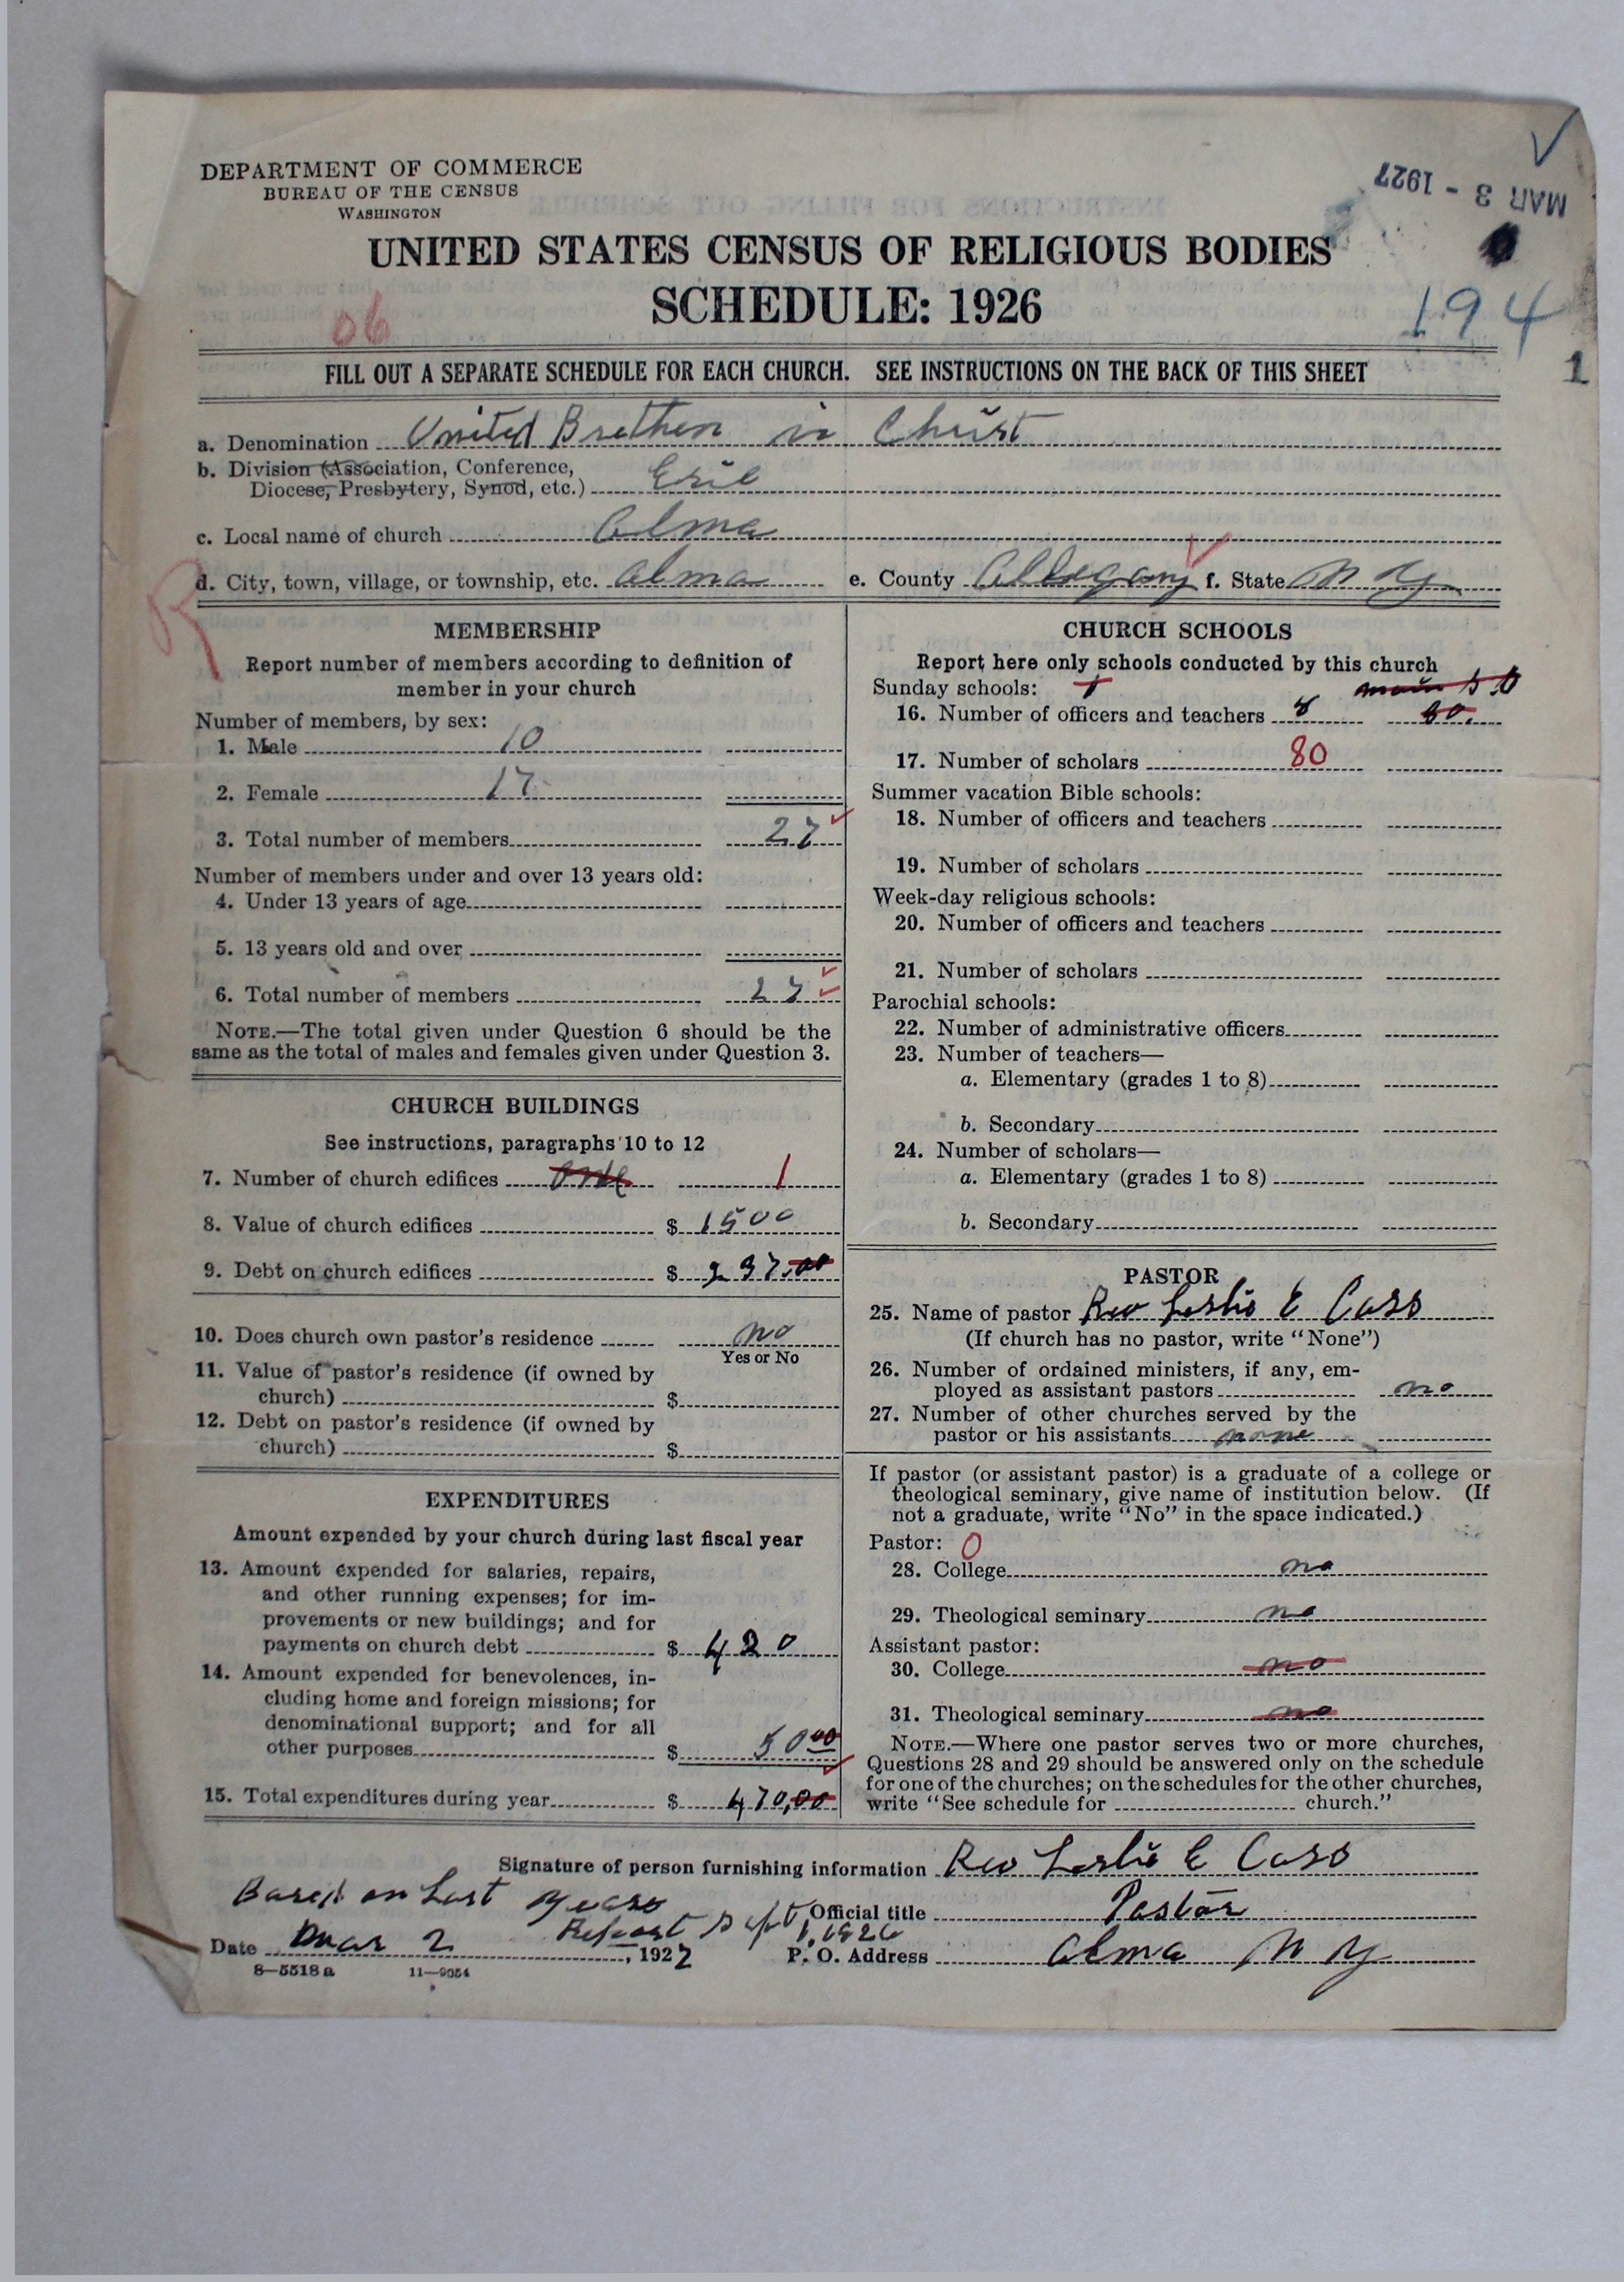 DEPARTMENT OF COMMERCE
BUREAU OF THE CENSUS
WASHINGTON
MAR 3 - 1927
UNITED STATES CENSUS OF RELIGIOUS BODIES
SCHEDULE: 1926
06
194
FILL OUT A SEPARATE SCHEDULE FOR EACH CHURCH. SEE INSTRUCTIONS ON THE BACK OF THIS SHEET
1
a. Denomination United Brethern in Christ
b. Division (Association, Conference,
Diocese, Presbytery, Synod, etc.) Erie
c. Local name of church Alma
d. City, town, village, or township, etc. Alma e. County Allegany f. State N Y
R
MEMBERSHIP
Report number of members according to definition of
member in your church
Number of members, by sex:
1. Male 10
2. Female 17
3. Total number of members 27
Number of members under and over 13 years old:
4. Under 13 years of age
5. 13 years old and over
6. Total number of members 27
NOTE.—The total given under Question 6 should be the
same as the total of males and females given under Question 3.
CHURCH BUILDINGS
See instructions, paragraphs 10 to 12
7. Number of church edifices one 1
8. Value of church edifices $ 1500
9. Debt on church edifices $ 237.00
10. Does church own pastor's residence no
Yes or No
11. Value of pastor's residence (if owned by
church) $
12. Debt on pastor's residence (if owned by
church) $
EXPENDITURES
Amount expended by your church during last fiscal year
13. Amount expended for salaries, repairs,
and other running expenses; for im-
provements or new buildings; and for
payments on church debt $ 420
14. Amount expended for benevolences, in-
cluding home and foreign missions; for
denominational support; and for all
other purposes $ 50 00
15. Total expenditures during year $ 470,00
CHURCH SCHOOLS
Report here only schools conducted by this church
Sunday schools:
16. Number of officers and teachers 8 80.
17. Number of scholars 80
Summer vacation Bible schools:
18. Number of officers and teachers
19. Number of scholars
Week-day religious schools:
20. Number of officers and teachers
21. Number of scholars
Parochial schools:
22. Number of administrative officers
23. Number of teachers—
a. Elementary (grades 1 to 8)
b. Secondary
24. Number of scholars—
a. Elementary (grades 1 to 8)
b. Secondary
PASTOR
25. Name of pastor Rev Leslie E Cass
(If church has no pastor, write "None")
26. Number of ordained ministers, if any, em-
ployed as assistant pastors no
27. Number of other churches served by the
pastor or his assistants none
If pastor (or assistant pastor) is a graduate of a college or
theological seminary, give name of institution below. (If
not a graduate, write "No" in the space indicated.)
Pastor: 0
28. College no
29. Theological seminary no
Assistant pastor:
30. College no
31. Theological seminary no
NOTE.—Where one pastor serves two or more churches,
Questions 28 and 29 should be answered only on the schedule
for one of the churches; on the schedules for the other churches,
write "See schedule for church."
Signature of person furnishing information Rev Leslie E Cass
Based on Last years
Report Sept 1, 1926
Official title Pastor
Date Mar 2, 1927 P. O. Address Alma N Y
8—5518 a 11—9054